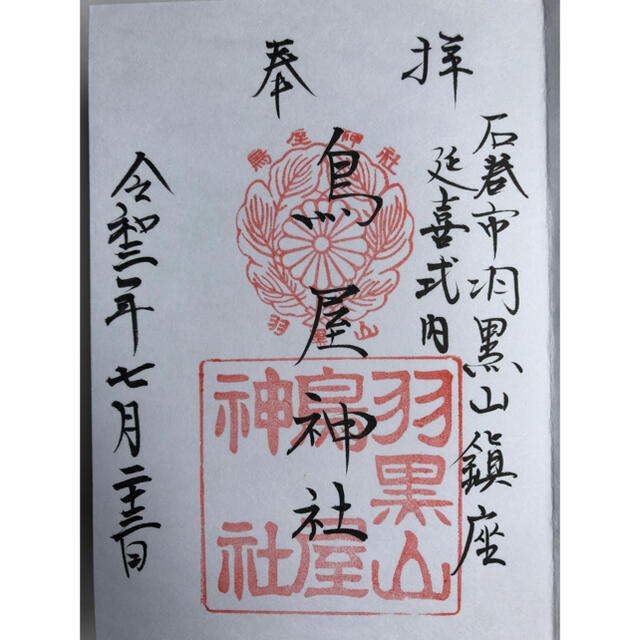 奉拝
石巻市羽黒山鎮座
延喜式内
鳥屋神社
令和三年七月二十三日
鳥屋神社
羽黒山
羽黒山
鳥屋
神社